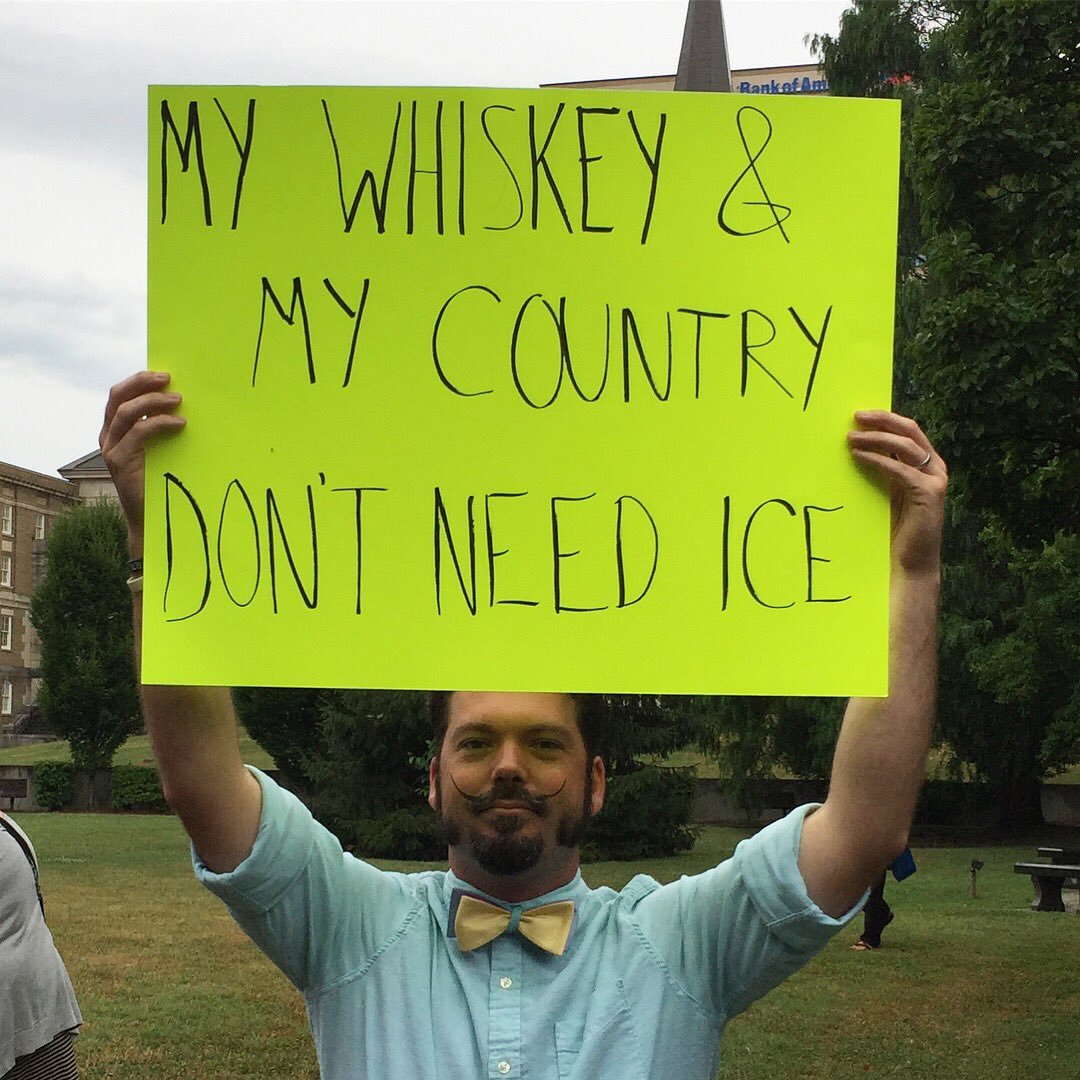 Bank of Am
MY WHISKEY &
MY COUNTRY
DON'T NEED ICE